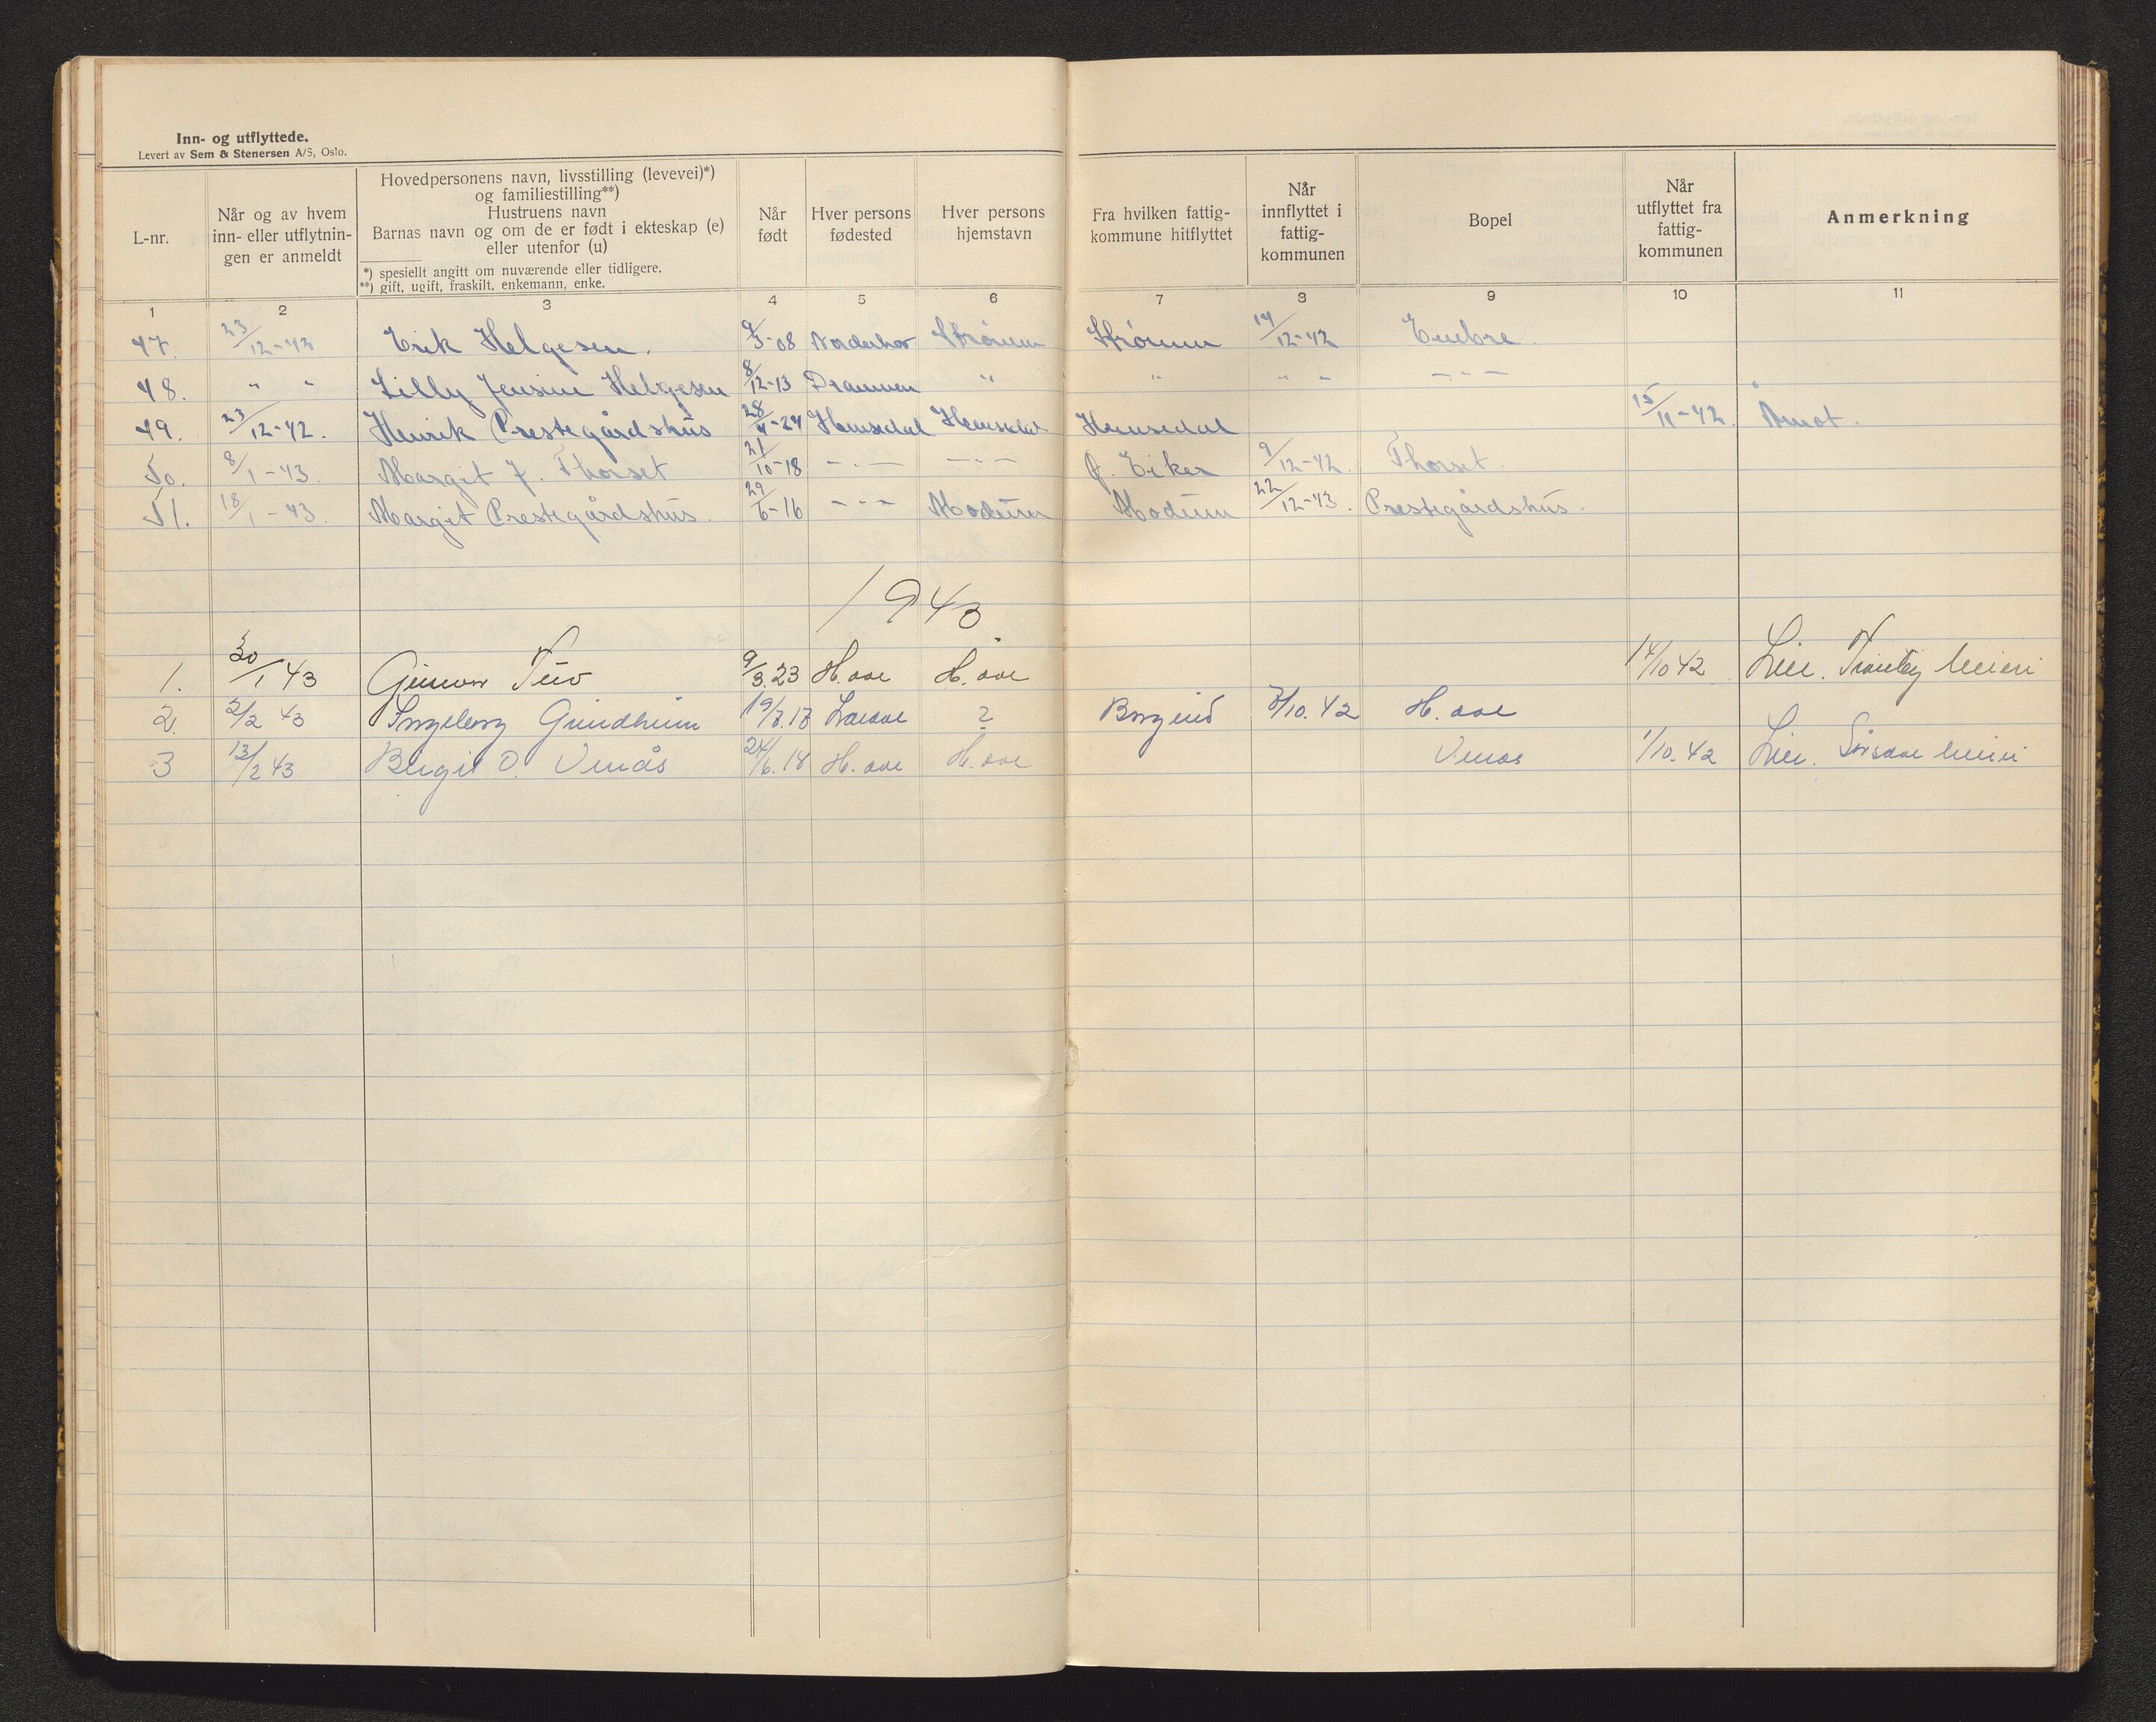 Inn- og utflyttede.
Levert av Sem & Stenersen A/S, Oslo.
L-nr.
Når og av hvem
inn- eller utflytnin-
gen er anmeldt
Hovedpersonens navn, livsstilling (levevei)*)
og familiestilling**)
Hustruens navn
Barnas navn og om de er født i ekteskap (e)
eller utenfor (u)
*) spesiellt angitt om nuværende eller tidligere.
**) gift, ugift, fraskilt, enkemann, enke.
Når
født
Hver persons
fødested
Hver persons
hjemstavn
Fra hvilken fattig-
kommune hitflyttet
Når
innflyttet i
fattig-
kommunen
Bopel
Når
utflyttet fra
fattig-
kommunen
Anmerkning
1 2 3 4 5 6 7 8 9 10 11
47. 23/12-42 Erik Helgesen. 9/3-08 Norderhov Strømm Strømm 14/12-42 Embre
48. " " Lilly Jensine Helgesen 8/12-13 Drammen " " " " - " -
49. 23/12-42. Henrik Prestegårdshus 28/4-24 Hemsedal Hemsedal Hemsedal 15/11-42 Åmot.
50. 8/1-43. Margit J. Thorset 21/10-18 - " - - " - Ø. Eiker 9/12-42. Thorset.
51. 18/1-43. Margit Prestegårdshus. 29/6-16 - " - Modum Modum 22/12-43. Prestegårdshus.
1943
1. 30/1 43 Gunvor Tuv 9/3.23 H.dal H.dal 14/10 42 Lier. Tranby Meieri
2. 2/2 43 Ingeborg Grindheim 19/7.17 ? Borgund 7/10.42 H.dal
3 13/2 43 Birgit O. Venås 24/6.18 H.dal H.dal Venås 1/10.42 Lier. Meieri